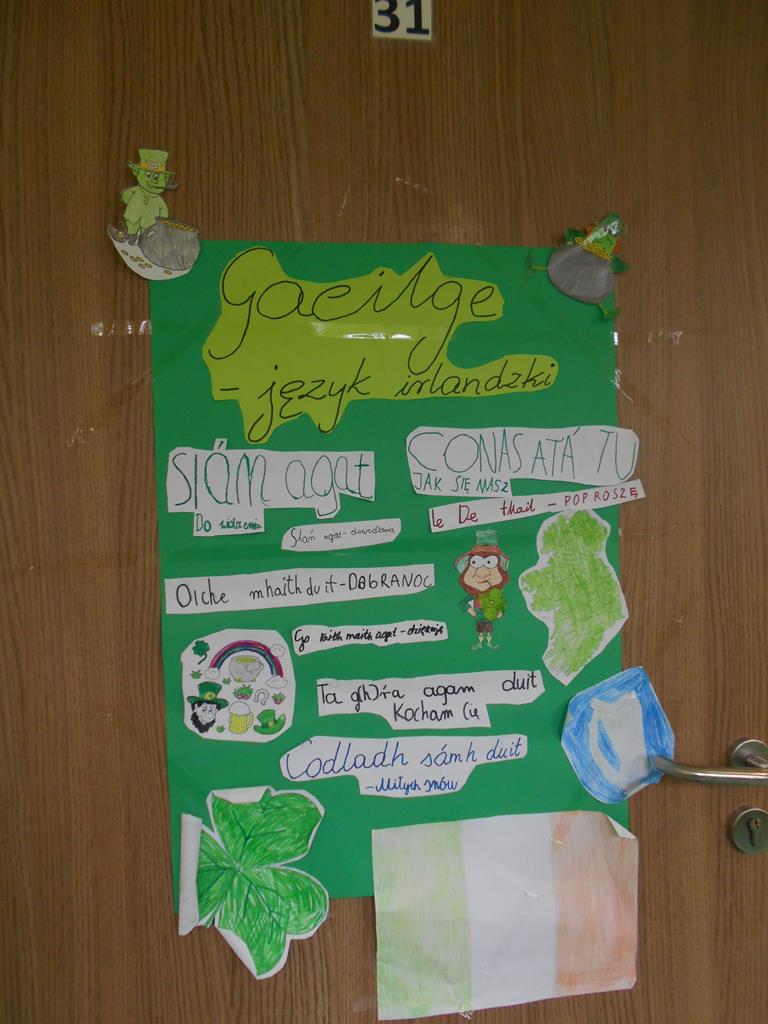 31
Gaeilge
- język irlandzki
Slám agat
Do widzenia
CONAS ATÁ TU
JAK SIĘ MASZ
le De thail - POPROSZĘ
Slán agat - dowidzenia
Oiche mhaith duit - DOBRANOC
Go raith maith agat - dziękuję
Ta g(h)ra agam duit
Kocham Cię
Codladh sámh duit
- Miłych snów